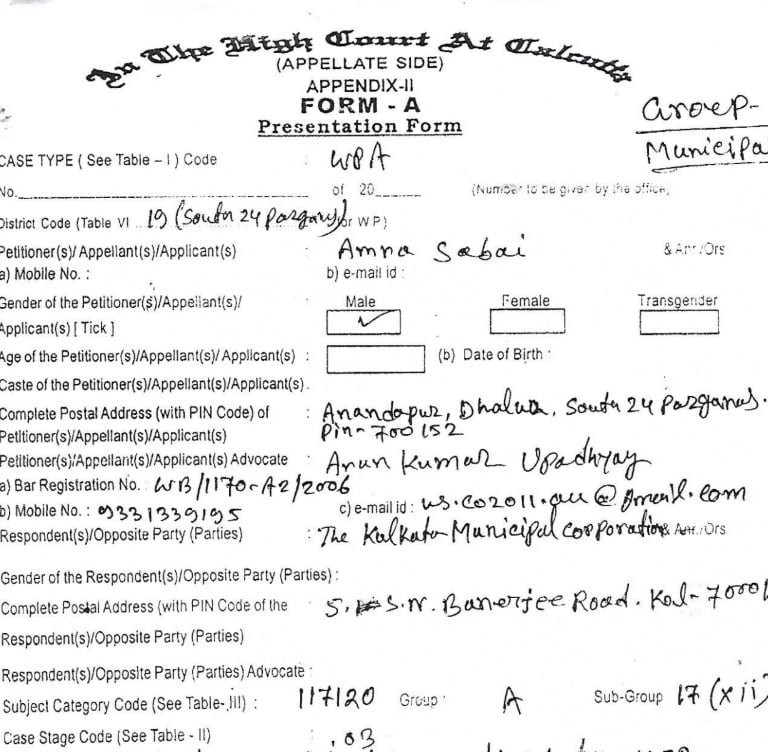 In The High Court At Calcutta
(APPELLATE SIDE)
APPENDIX-II
FORM - A
Presentation Form
Group-
Municipal
CASE TYPE ( See Table – I ) Code : WPA
No. of 20 (Number to be given by the office,
District Code (Table VI 19 (South 24 Parganas) for WP)
Petitioner(s)/Appellant(s)/Applicant(s) : Amna Sabai & Anr./Ors
a) Mobile No. : b) e-mail id :
Gender of the Petitioner(s)/Appellant(s)/ Male Female Transgender
Applicant(s) [ Tick ] ✓
Age of the Petitioner(s)/Appellant(s)/Applicant(s) : (b) Date of Birth :
Caste of the Petitioner(s)/Appellant(s)/Applicant(s).
Complete Postal Address (with PIN Code) of : Anandapur, South 24 Parganas.
Petitioner(s)/Appellant(s)/Applicant(s) Pin-700152
Petitioner(s)/Appellant(s)/Applicant(s) Advocate : Arun Kumar Upadhyay
a) Bar Registration No. : WB/1170-A2/2006
b) Mobile No. : 9331339195 c) e-mail id : @gmail.com
Respondent(s)/Opposite Party (Parties) : The Kolkata Municipal Corporation & Anr./Ors
Gender of the Respondent(s)/Opposite Party (Parties) :
Complete Postal Address (with PIN Code of the : 5, S.N. Banerjee Road. Kol-70001
Respondent(s)/Opposite Party (Parties)
Respondent(s)/Opposite Party (Parties) Advocate :
Subject Category Code (See Table-III) : 117120 Group : A Sub-Group 17 (xii)
Case Stage Code (See Table - II) : .03